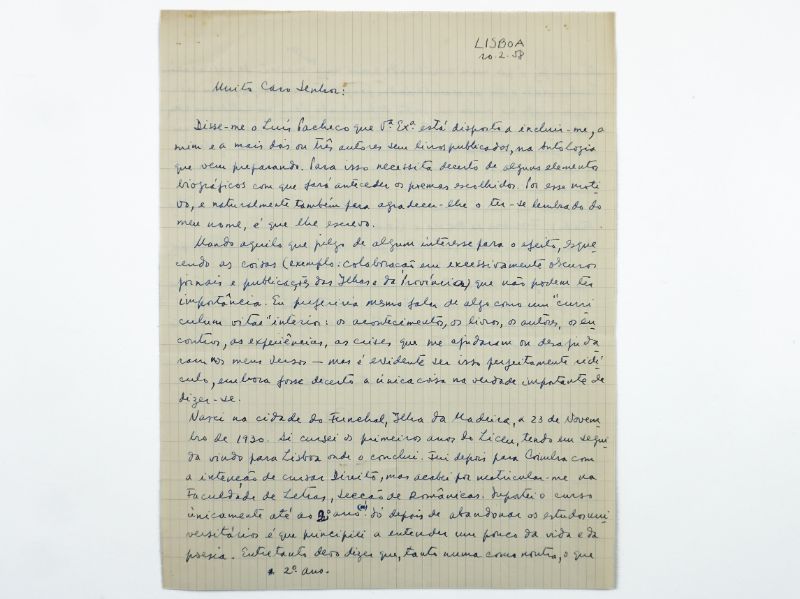 LISBOA
20-2-58
Muito Caro Senhor:
Disse-me o Luís Pacheco que V.ª Ex.ª está disposto a incluir-me, a
mim e a mais dois ou três autores sem livros publicados, na Antologia
que vem preparando. Para isso necessita decerto de alguns elementos
biográficos com que fará anteceder os poemas escolhidos. Por esse moti-
vo, e naturalmente também para agradecer-lhe o ter-se lembrado do
meu nome, é que lhe escrevo.
Mando aquilo que julgo de algum interesse para o efeito, esque-
cendo as coisas (exemplo: colaboração em excessivamente obscuros
jornais e publicações das Ilhas e da Província) que não podem ter
importância. Eu preferiria mesmo falar de algo como um "curri-
culum vitae" interior: os acontecimentos, os livros, os autores, os en-
contros, as experiências, as crises que me ajudaram ou desajuda-
ram nos meus versos — mas é evidente ser isso perfeitamente ridí-
culo, embora fosse decerto a única coisa na verdade importante de
dizer-se.
Nasci na cidade do Funchal, Ilha da Madeira, a 23 de Novem-
bro de 1930. Aí cursei os primeiros anos do Liceu, tendo em segui-
da vindo para Lisboa onde o concluí. Fui depois para Coimbra com
a intenção de cursar Direito, mas acabei por matricular-me na
Faculdade de Letras, secção de Românicas. Suportei o curso
únicamente até ao 2º ano. Só depois de abandonar os estudos uni-
versitários é que principiei a entender um pouco da vida e da
poesia. Entretanto devo dizer que, tanto numa como noutra, o que
* 2º. ano.